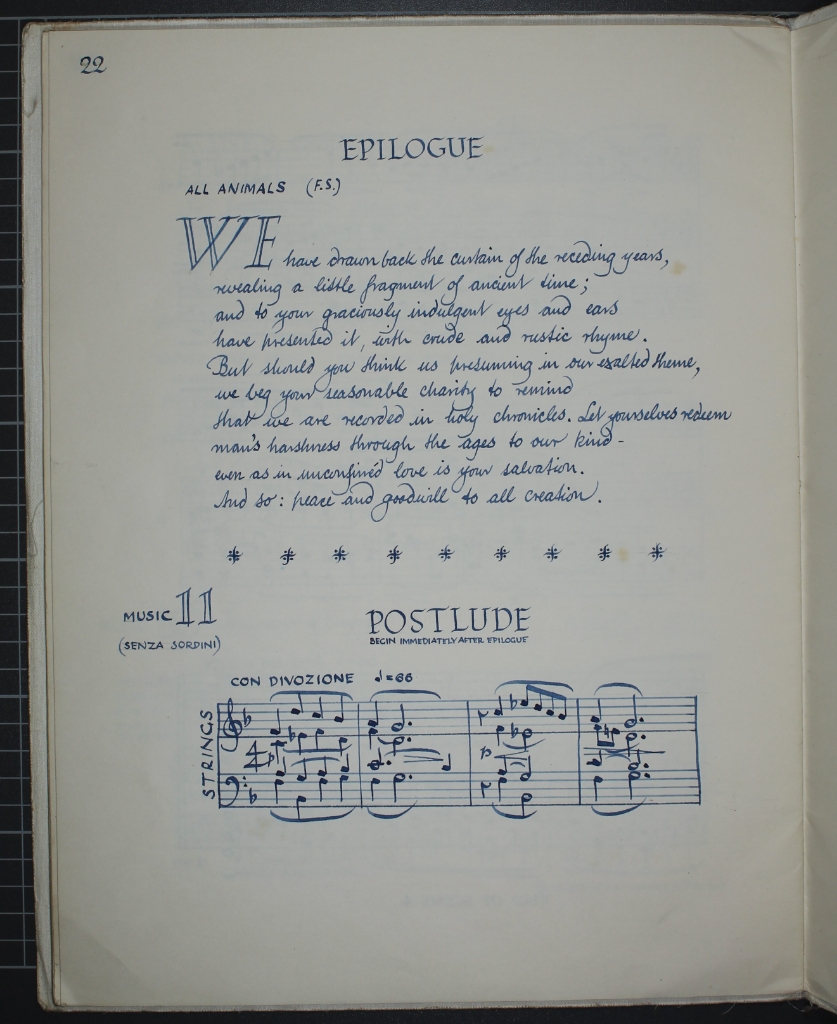 22
EPILOGUE
ALL ANIMALS (F.S.)
WE have drawn back the curtain of the receding years,
revealing a little fragment of ancient time;
and to your graciously indulgent eyes and ears
have presented it, with crude and rustic rhyme.
But should you think us presuming in our exalted theme,
we beg your seasonable charity to remind
that we are recorded in holy chronicles. Let yourselves redeem
man's harshness through the ages to our kind -
even as in unconfinéd love is your salvation.
And so: peace and goodwill to all creation.
* * * * * * * * *
MUSIC 11
(SENZA SORDINI)
POSTLUDE
BEGIN IMMEDIATELY AFTER EPILOGUE
CON DIVOZIONE ♩=66
STRINGS